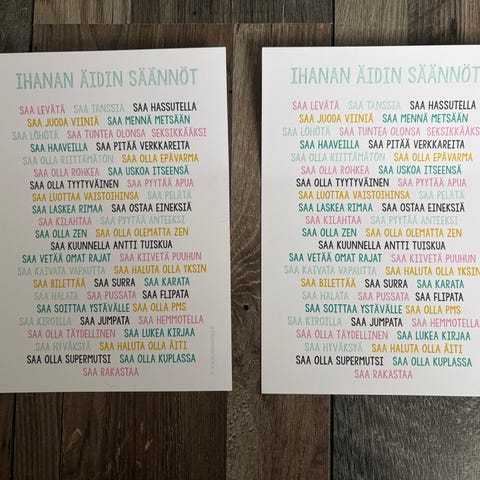 IHANAN ÄIDIN SÄÄNNÖT
SAA LEVÄTÄ SAA TANSSIA SAA HASSUTELLA
SAA JUODA VIINIÄ SAA MENNÄ METSÄÄN
SAA LÖHÖTÄ SAA TUNTEA OLONSA SEKSIKKÄÄKSI
SAA HAAVEILLA SAA PITÄÄ VERKKAREITA
SAA OLLA RIITTÄMÄTÖN SAA OLLA EPÄVARMA
SAA OLLA ROHKEA SAA USKOA ITSEENSÄ
SAA OLLA TYYTYVÄINEN SAA PYYTÄÄ APUA
SAA LUOTTAA VAISTOIHINSA SAA PELÄTÄ
SAA LASKEA RIMAA SAA OSTAA EINEKSIÄ
SAA KILAHTAA SAA PYYTÄÄ ANTEEKSI
SAA OLLA ZEN SAA OLLA OLEMATTA ZEN
SAA KUUNNELLA ANTTI TUISKUA
SAA VETÄÄ OMAT RAJAT SAA KIIVETÄ PUUHUN
SAA KAIVATA VAPAUTTA SAA HALUTA OLLA YKSIN
SAA BILETTÄÄ SAA SURRA SAA KARATA
SAA HALATA SAA PUSSATA SAA FLIPATA
SAA SOITTAA YSTÄVÄLLE SAA OLLA PMS
SAA KIROILLA SAA JUMPATA SAA HEMMOTELLA
SAA OLLA TÄYDELLINEN SAA LUKEA KIRJAA
SAA HYVÄKSYÄ SAA HALUTA OLLA ÄITI
SAA OLLA SUPERMUTSI SAA OLLA KUPLASSA
SAA RAKASTAA
IHANAN ÄIDIN SÄÄNNÖT
SAA LEVÄTÄ SAA TANSSIA SAA HASSUTELLA
SAA JUODA VIINIÄ SAA MENNÄ METSÄÄN
SAA LÖHÖTÄ SAA TUNTEA OLONSA SEKSIKKÄÄKS
SAA HAAVEILLA SAA PITÄÄ VERKKAREITA
SAA OLLA RIITTÄMÄTÖN SAA OLLA EPÄVARMA
SAA OLLA ROHKEA SAA USKOA ITSEENSÄ
SAA OLLA TYYTYVÄINEN SAA PYYTÄÄ APUA
SAA LUOTTAA VAISTOIHINSA SAA PELÄTÄ
SAA LASKEA RIMAA SAA OSTAA EINEKSIÄ
SAA KILAHTAA SAA PYYTÄÄ ANTEEKSI
SAA OLLA ZEN SAA OLLA OLEMATTA ZEN
SAA KUUNNELLA ANTTI TUISKUA
SAA VETÄÄ OMAT RAJAT SAA KIIVETÄ PUUHUN
SAA KAIVATA VAPAUTTA SAA HALUTA OLLA YKSIN
SAA BILETTÄÄ SAA SURRA SAA KARATA
SAA HALATA SAA PUSSATA SAA FLIPATA
SAA SOITTAA YSTÄVÄLLE SAA OLLA PMS
SAA KIROILLA SAA JUMPATA SAA HEMMOTELLA
SAA OLLA TÄYDELLINEN SAA LUKEA KIRJAA
SAA HYVÄKSYÄ SAA HALUTA OLLA ÄITI
SAA OLLA SUPERMUTSI SAA OLLA KUPLASSA
SAA RAKASTAA